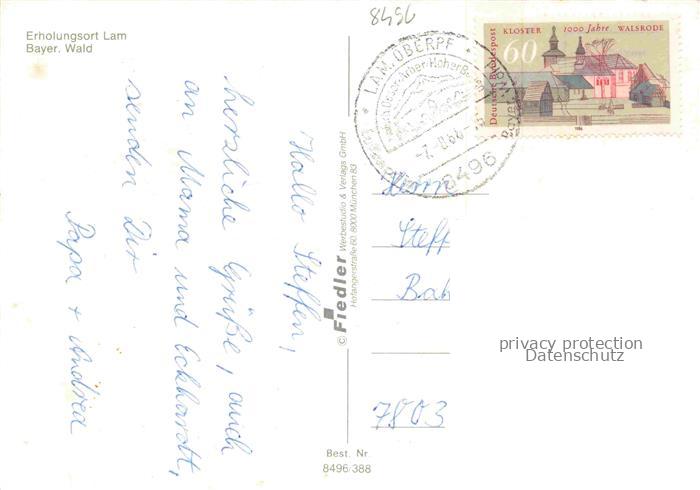 8496
Erholungsort Lam
Bayer. Wald
Hallo Steffen,
herzliche Grüße, auch
an Mama und Eckhardt,
senden Dir
Papa + Andrea
© Fiedler Werbestudio & Verlags GmbH
Hofangerstraße 60, 8000 München 83
Best. Nr.
8496/388
LAM, OBERPF
8496
KLOSTER 1000 Jahre WALSRODE
60
Deutsche Bundespost
1986
Herrn
Steff
Bah
7803
privacy protection
Datenschutz